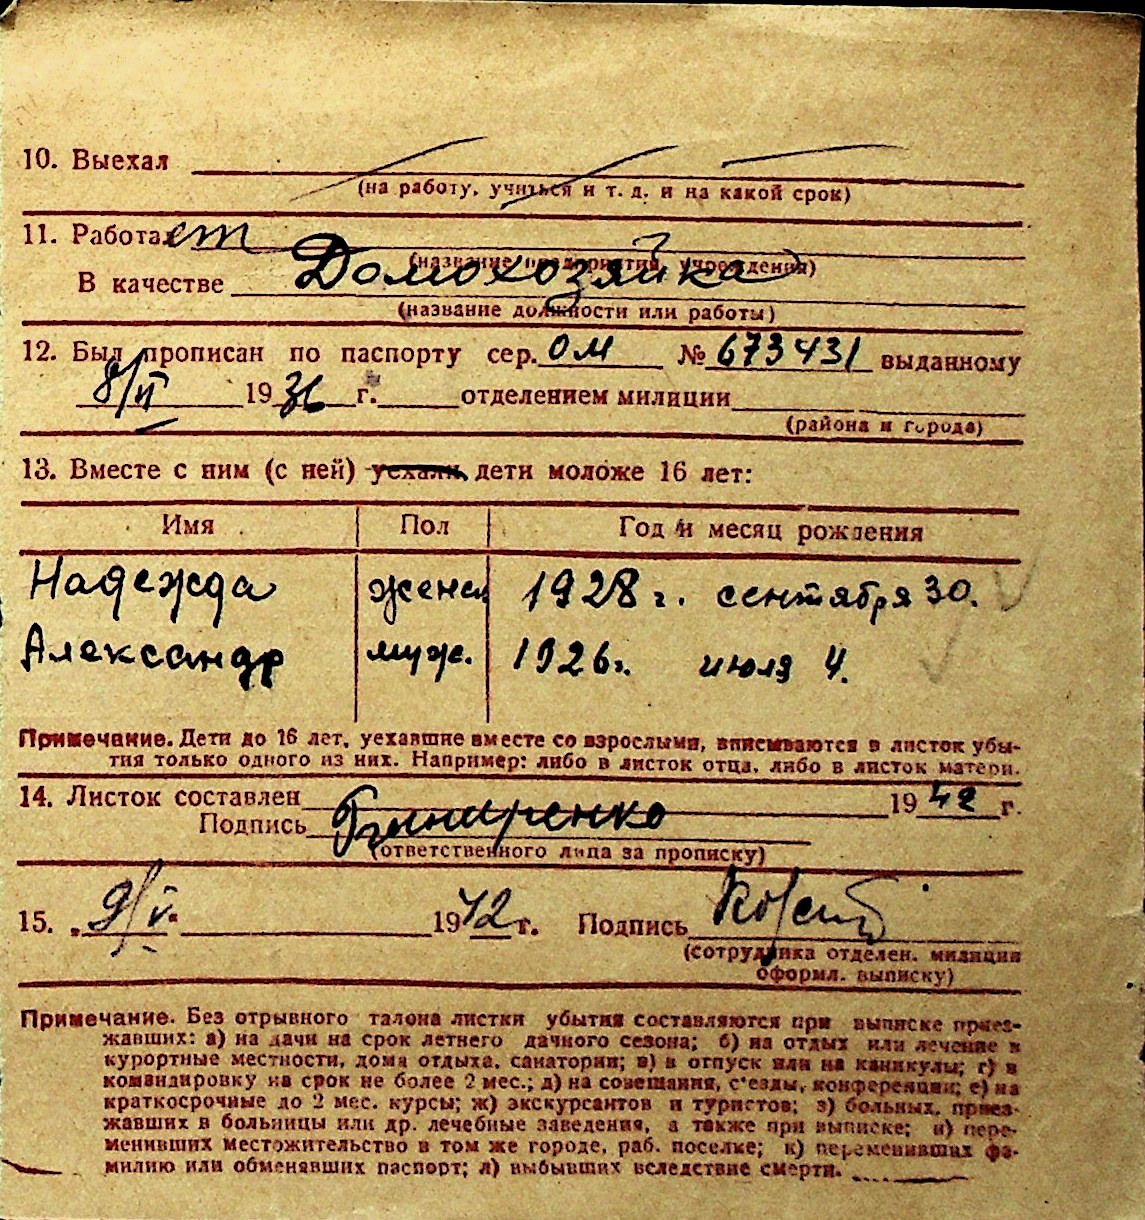 10. Выехал
(на работу, учиться и т. д. и на какой срок)
11. Работает
(название предприятия, учреждения)
В качестве Домохозяйка
(название должности или работы)
12. Был прописан по паспорту сер. ОМ № 673431 выданному
8/II 1936 г. отделением милиции
(района и города)
13. Вместе с ним (с ней) уехали дети моложе 16 лет:
Имя Пол Год и месяц рождения
Надежда женск 1928 г. сентября 30.
Александр муж. 1926 г. июля 4.
Примечание. Дети до 16 лет, уехавшие вместе со взрослыми, вписываются в листок убы-
тия только одного из них. Например: либо в листок отца, либо в листок матери.
14. Листок составлен 1942 г.
Подпись
(ответственного лица за прописку)
15. „9/V" 1942 г. Подпись
(сотрудника отделен. милиции
оформл. выписку)
Примечание. Без отрывного талона листки убытия составляются при выписке приез-
жавших: а) на дачи на срок летнего дачного сезона; б) на отдых или лечение в
курортные местности, дома отдыха, санатории; в) в отпуск или на каникулы; г) в
командировку на срок не более 2 мес.; д) на совещания, с'езды, конференции; е) на
краткосрочные до 2 мес. курсы; ж) экскурсантов и туристов; з) больных, приез-
жавших в больницы или др. лечебные заведения, а также при выписке; и) пере-
менивших местожительство в том же городе, раб. поселке; к) переменивших фа-
милию или обменявших паспорт; л) выбывших вследствие смерти.